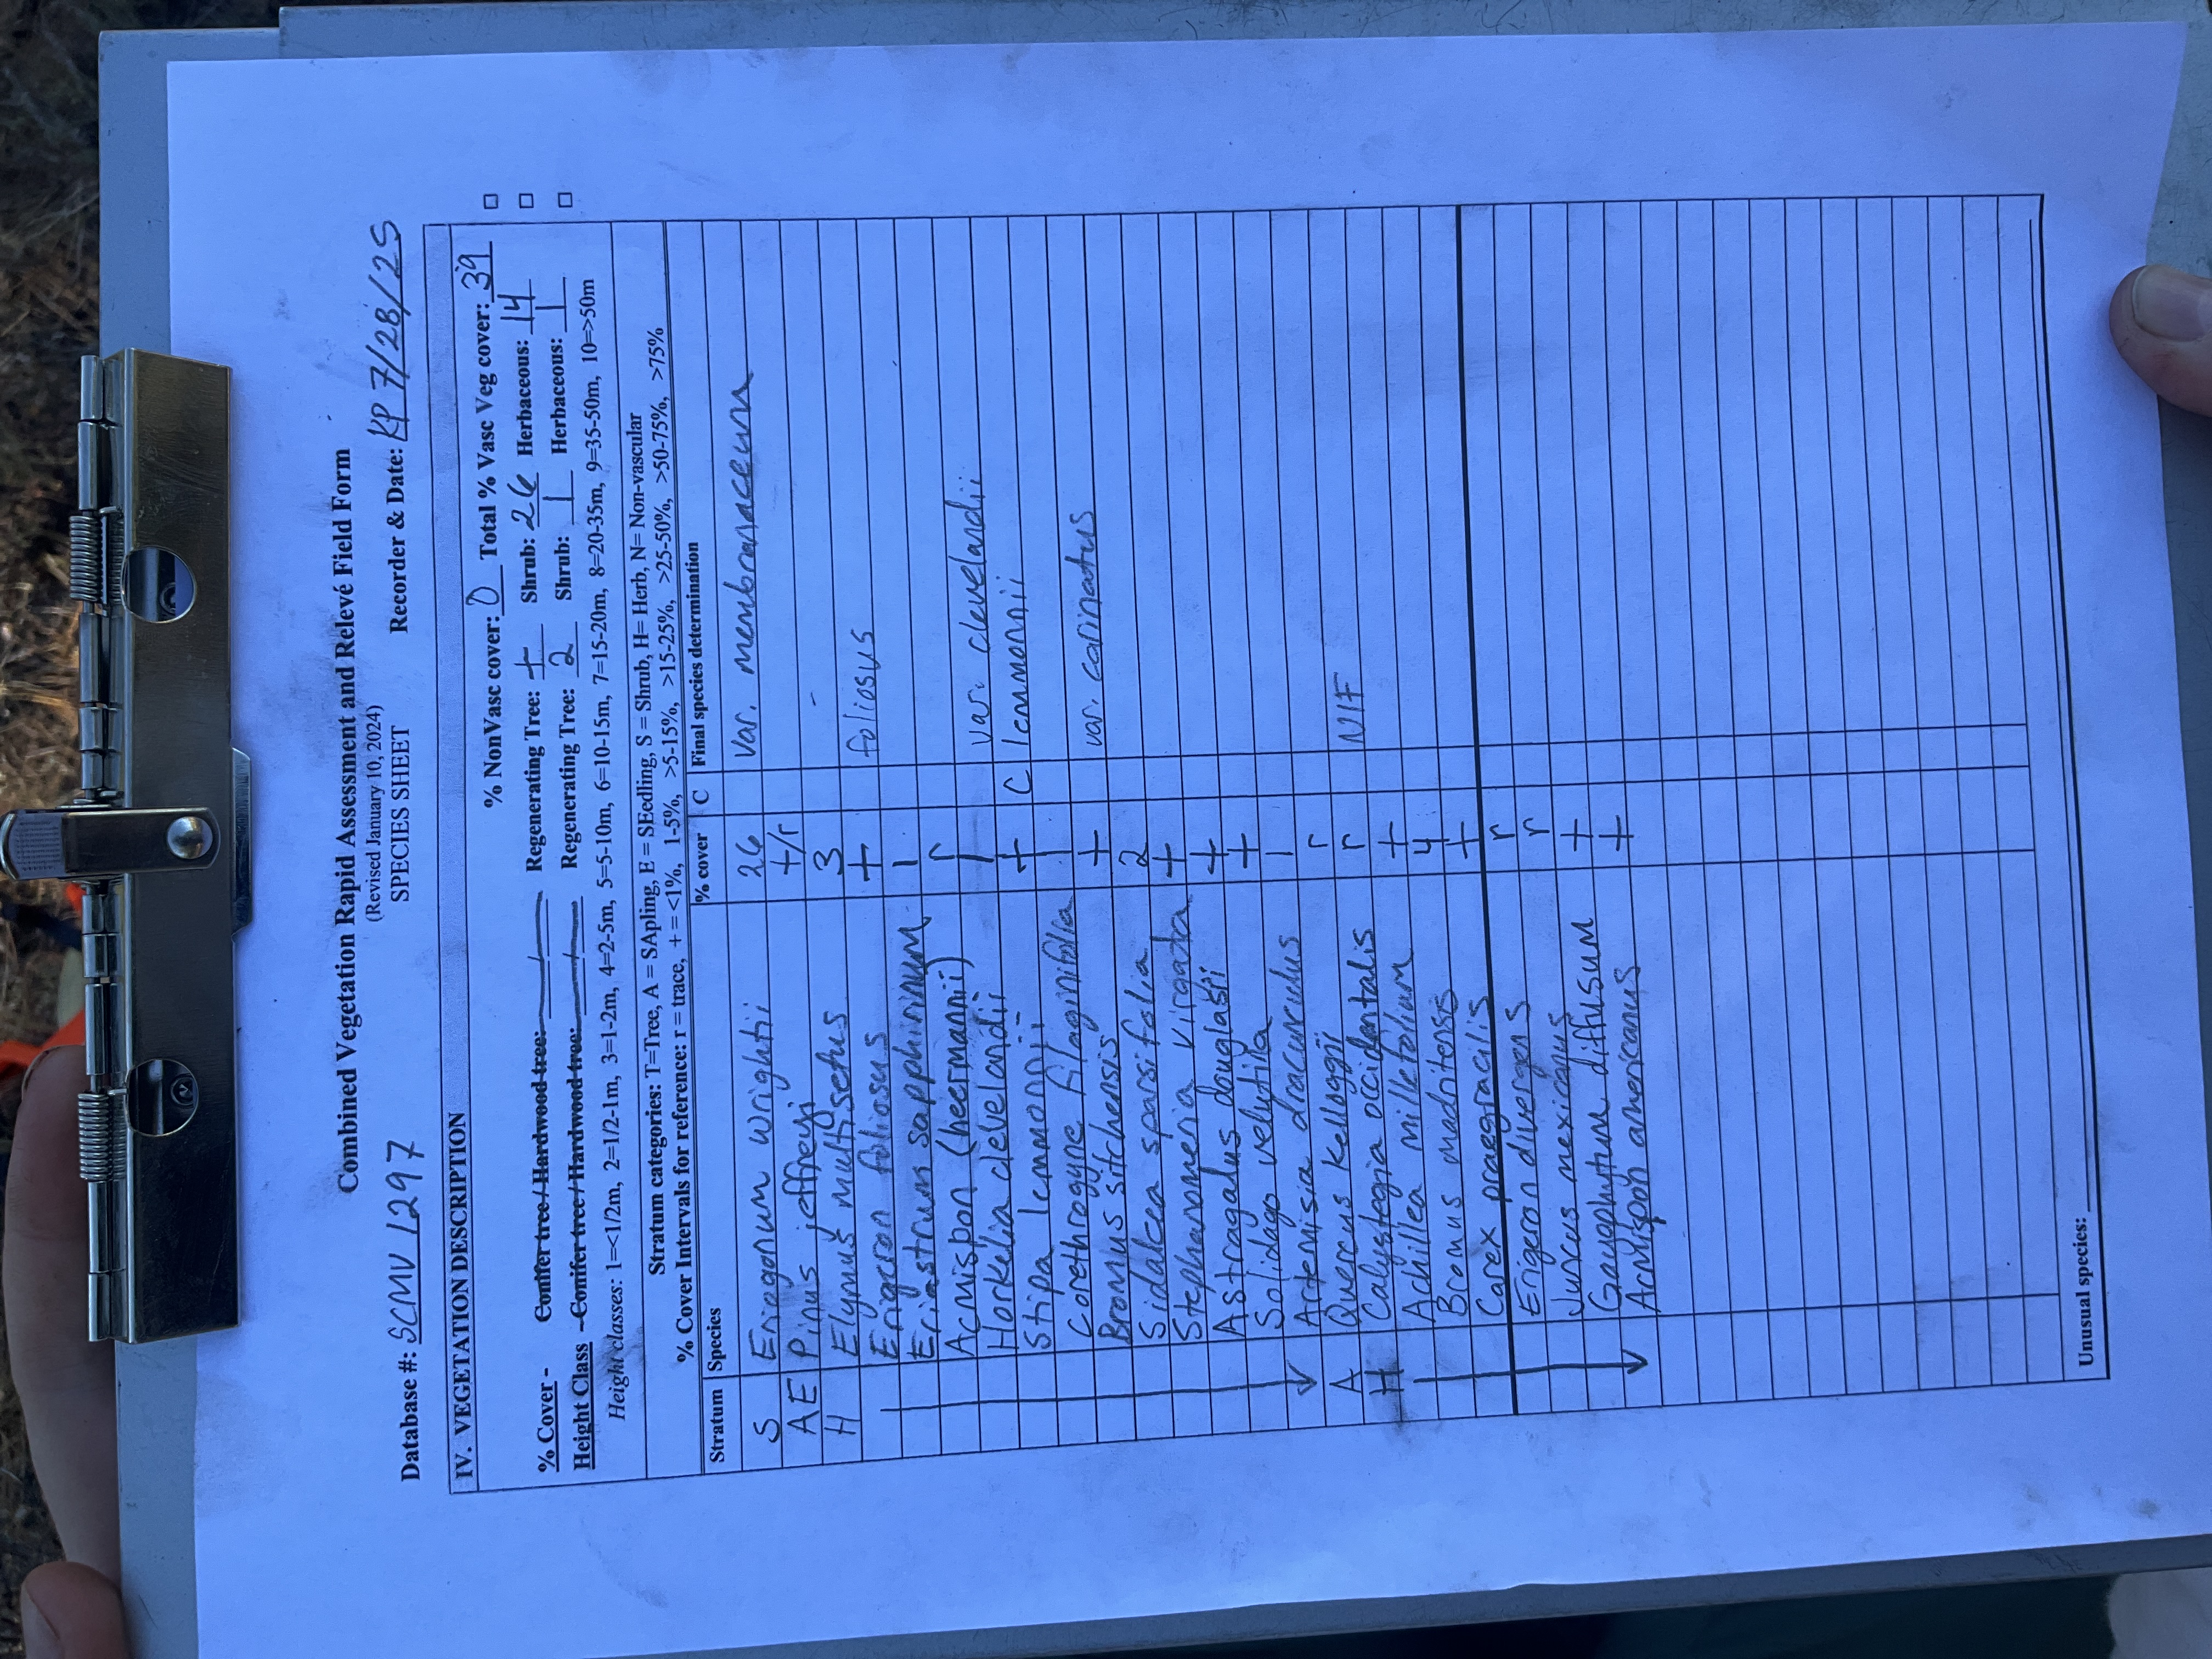 Combined Vegetation Rapid Assessment and Relevé Field Form
(Revised January 10, 2024)
SPECIES SHEET
Database #: SCMV 1297 Recorder & Date: KP 7/28/25
IV. VEGETATION DESCRIPTION
% NonVasc cover: 0 Total % Vasc Veg cover: 39
% Cover - Conifer tree / Hardwood tree: / Regenerating Tree: + Shrub: 26 Herbaceous: 14
Height Class - Conifer tree / Hardwood tree: / Regenerating Tree: 2 Shrub: 1 Herbaceous: 1
Height classes: 1=<1/2m, 2=1/2-1m, 3=1-2m, 4=2-5m, 5=5-10m, 6=10-15m, 7=15-20m, 8=20-35m, 9=35-50m, 10=>50m
Stratum categories: T=Tree, A = SApling, E = SEedling, S = Shrub, H= Herb, N= Non-vascular
% Cover Intervals for reference: r = trace, + = <1%, 1-5%, >5-15%, >15-25%, >25-50%, >50-75%, >75%
Stratum Species % cover C Final species determination
S Eriogonum wrightii 26 var. membranaceum
AE Pinus jeffreyi +/r
H Elymus multisetus 3
Erigeron foliosus + foliosus
Eriastrum sapphirinum 1
Acmispon (heermannii) r
Horkelia clevelandii 1 var. clevelandii
Stipa lemmonii + C lemmonii
Corethrogyne filaginifolia 1
Bromus sitchensis + var. carinatus
Sidalcea sparsifolia 2
Stephanomeria virgata +
Astragalus douglasii +
Solidago velutina +
Artemisia dracunculus 1
A Quercus kelloggii r
H Calystegia occidentalis r NIF
Achillea millefolium +
Bromus madritensis 4
Carex praegracilis +
Erigeron divergens r
Juncus mexicanus r
Gayophytum diffusum +
Acmispon americanus +
Unusual species: